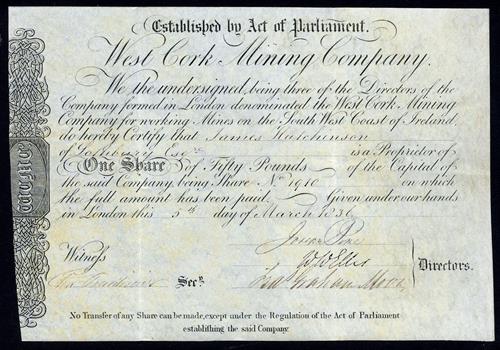 Established by Act of Parliament.
West Cork Mining Company.
We the undersigned, being three of the Directors of the
Company formed in London denominated the West Cork Mining
Company for working Mines on the South West Coast of Ireland,
do hereby Certify that James Hutchinson
of Esqre is a Proprietor of
One Share of Fifty Pounds of the Capital of
the said Company, being Share No. 1910 on which
the full amount has been paid. Given under our hands
in London this 5th day of March 1836
Witness
Secy.
Directors.
W C M C
No Transfer of any Share can be made, except under the Regulation of the Act of Parliament
establishing the said Company.